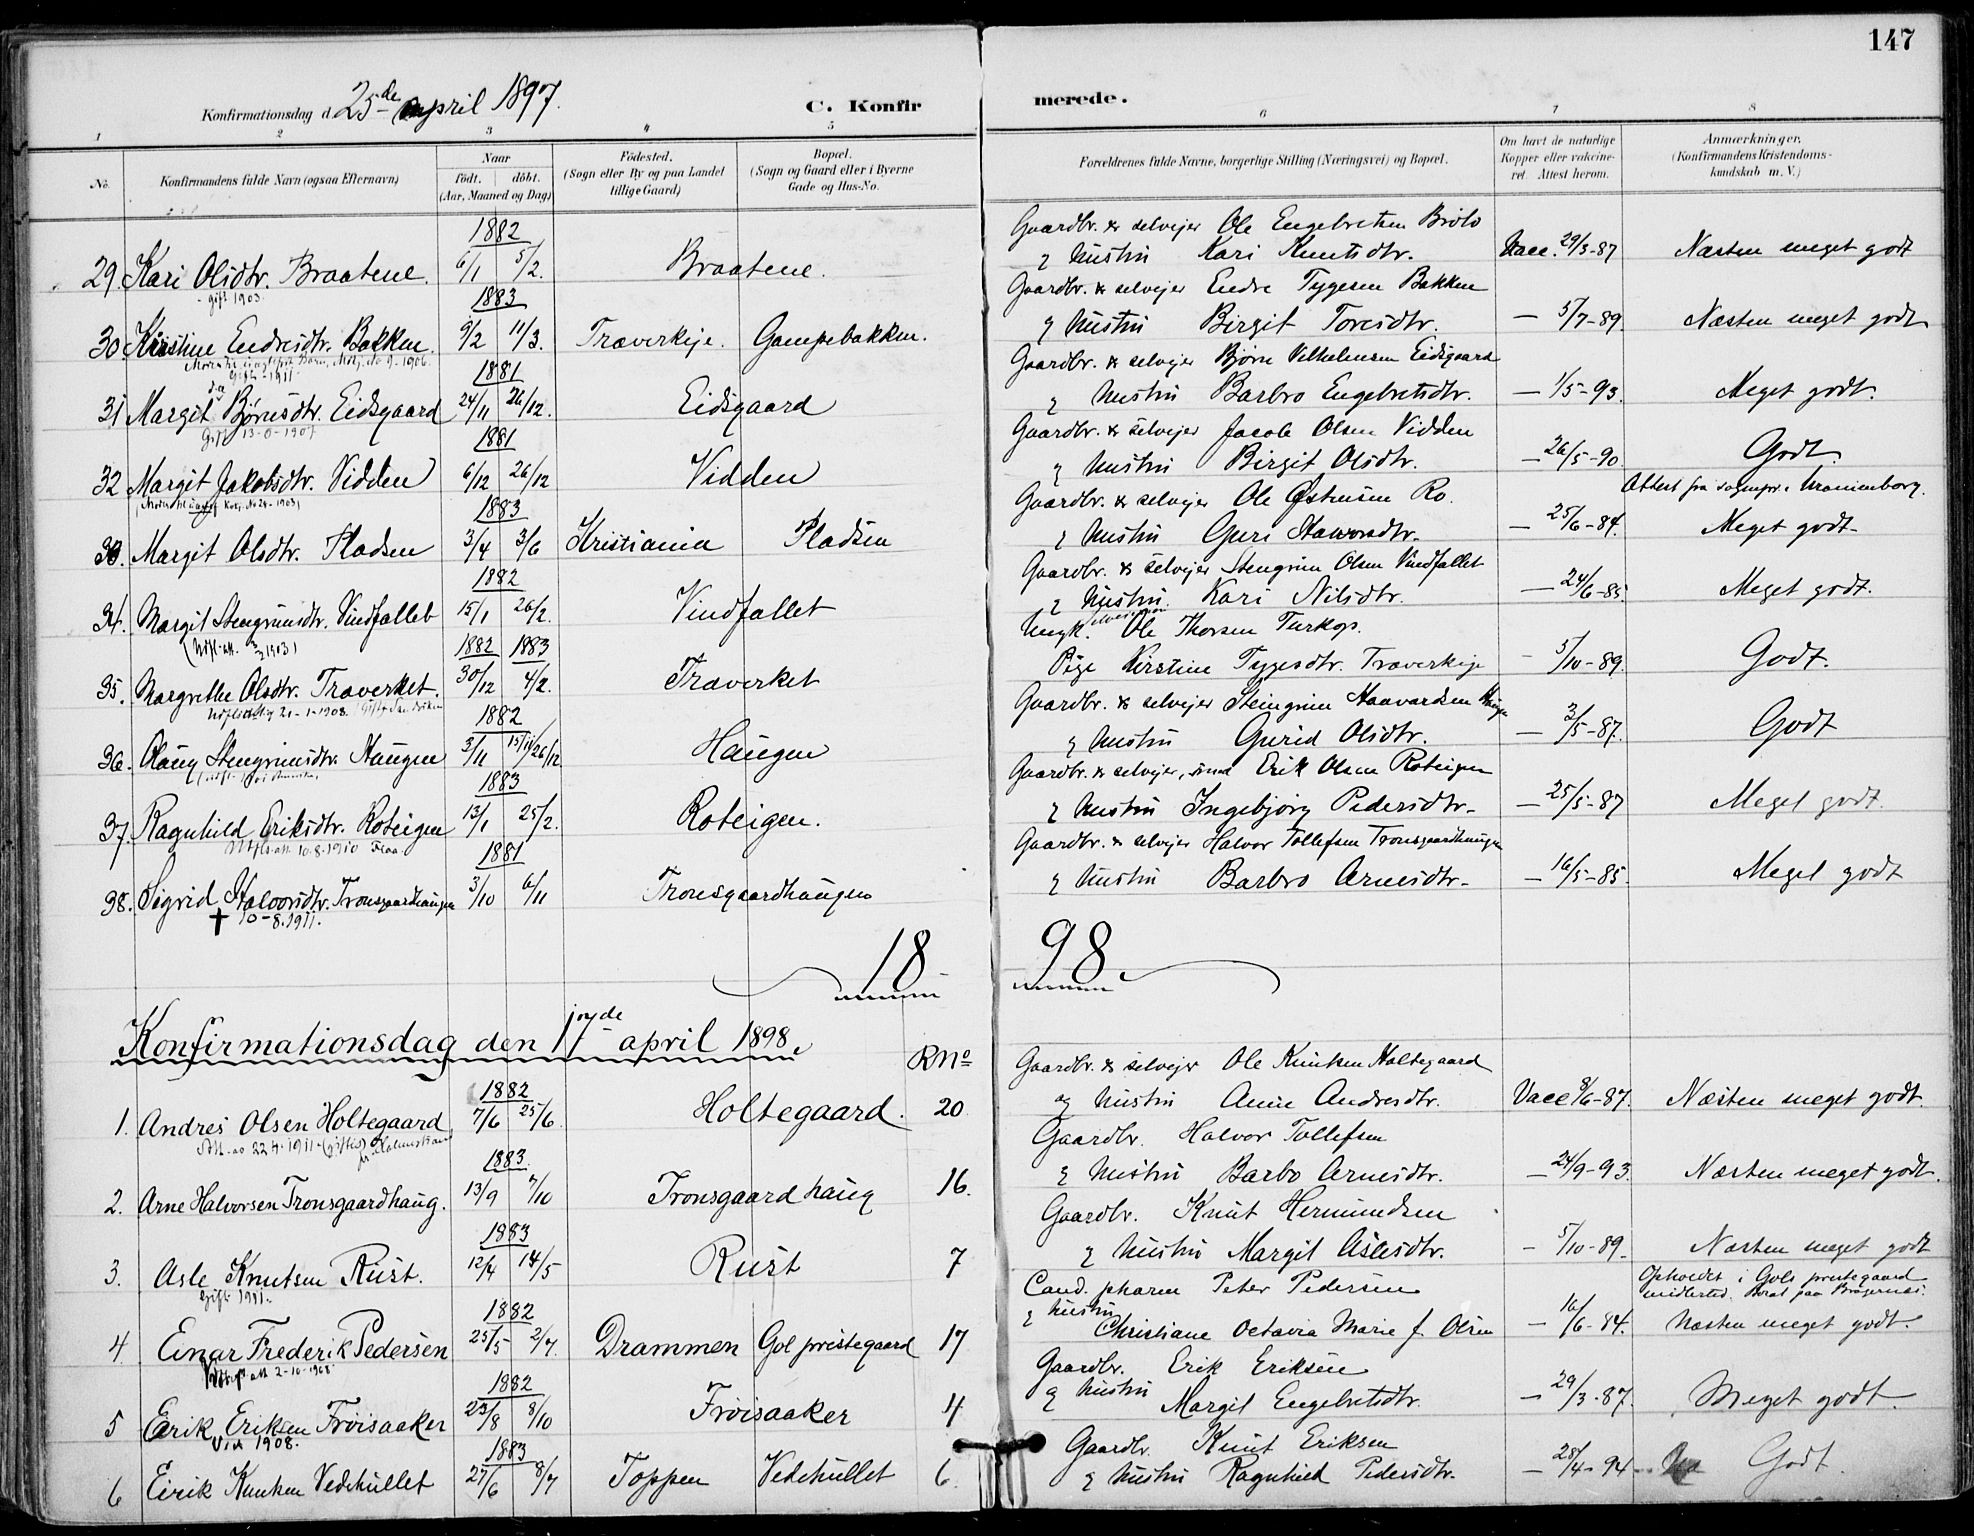 147
Konfirmationsdag d. 25de april 1897.
C. Konfirmerede.
1 2 3 4 5 6 7 8
No.
Konfirmandens fulde Navn (ogsaa Efternavn)
Naar
født. døbt.
(Aar, Maaned og Dag)
Fødested.
(Sogn eller By og paa Landet
tillige Gaard)
Bopæl.
(Sogn og Gaard eller i Byerne
Gade og Hus-No.
Forældrenes fulde Navne, borgerlige Stilling (Næringsvei) og Bopæl.
Om havt de naturlige
Kopper eller vakcine-
ret. Attest herom.
Anmærkninger.
(Konfirmandens Kristendoms-
kundskab m. V.)
1882 Gaardbr. & selvejer Ole Engebretsen
29 Kari Olsdtr. Braatene. 6/1 5/2. Braatene. & hustru Kari Knutsdtr. Vacc. 29/3-87 Næsten meget godt
gift 1903.
1883 Gaardbr. & selvejer Endre Tygesen Bakken
30 Kirstine Endresdtr. Bakken. 9/2 11/3. Træverkeje. Gampebakken. & hustru Birgit Toresdtr. — 5/7-89 Næsten meget godt
Gift - 1911
1881 Gaardbr. & selvejer Bjørn Vilhelmsen Eidsgaard
31 Margit Bjørnsdtr. Eidsgaard 24/11 26/12. Eidsgaard & hustru Barbro Engebretsdtr. — 1/5-93. Meget godt.
1881 Gaardbr. & selvejer Jacob Olsen Vidden
32 Margit Jakobsdtr. Vidden 6/12 26/12 Vidden & hustru Birgit Olsdtr. — 26/5-90. Godt.
1883 Gaardbr. & selvejer Ole Østensen Ro. Attest fra sognepr. i Uranienborg.
33. Margit Olsdtr. Pladsen 3/4 3/6 Kristiania Pladsen & hustru Guri Halvorsdtr. — 25/6-84. Meget godt-
1882 Gaardbr. & selvejer Stengrim Olsen Vindfallet
34. Margit Stengrimsdtr. Vindfallet 15/1 26/2. Vindfallet & hustru. Kari Nilsdtr. — 24/6-85. Meget godt.
1882 1883 Ungk. Ole Thorsen Turkop.
35. Margrethe Olsdtr. Træverket. 30/12 4/2. Træverket Pige Kirstine Tygesdtr. Træverkeje - 5/10-89. Godt.
1882 Gaardbr. & selvejer Steingrim Haavardsen
36. Olaug Stengrimsdtr. Haugen 3/11 15/11/26/12 Haugen & hustru Gurid Olsdtr. — 3/5-87. Godt
1883 Gaardbr. & selvejer, smed Erik Olsen Roteigen
37. Ragnhild Eriksdtr. Roteigen 13/1 25/2. Roteigen. & hustru Ingebjørg Pedersdtr- — 25/5-87 Meget godt.
10.8.1910 Flaa.
1881 Gaardbr. & selvejer Halvor Tollefsen Tronsgaardhaugen
38. Sigrid Halvorsdtr. Tronsgaardhaugen 3/10 6/11 Tronsgaardhaugen & hustru Barbro Arnesdtr- — 16/5-85. Meget godt
† 10-8.1911.
18 98.
Konfirmationsdag den 17de april 1898.
RNo
1882 Gaardbr. & selvejer Ole Knutsen Holtegaard
1. Andres Olsen Holtegaard 7/6 25/6. Holtegaard. 20 og hustru Anne Andresdtr. Vacc 8/6-87. Næsten meget godt.
1883. Gaardbr. Halvor Tollefsen
2. Arne Halvorsen Tronsgaardhaug. 13/9 7/10 Tronsgaardhaug 16. & hustru Barbo Arnesdtr. — 24/9-93. Næsten meget godt.
1883 Gaardbr. Knut Hermundsen
3. Asle Knutsen Rust. 12/4 14/5 Rust 7 & hustru Margit Aslesdtr. - 5/10-89- Næsten meget godt
Gift 1911.
1882 Cand. pharm Peter Pedersen Opholdt i Gols prestegaard
midlertid.
4 Einar Frederik Pedersen 25/5 2/7. Drammen Gol prestegaard 17 & hustru Christiane Octavia Marie f. Olsen — 16/6-84. Næsten meget godt.
2-10-1908
1882 Gaardbr. Erik Eriksen
5 Erik Eriksen Frøisaaker 23/8 8/10 Frøisaaker 4 & hustru Margit Engebretsdtr. — 29/3-87. Meget godt.
1908.
1883 Gaardbr. Knut Eriksen
6 Eirik Knutsen Vedehullet 27/6 8/7 Toppen Vedehullet 6. & hustru Ragnhild Pedersdtr. — 28/4-94 Godt.